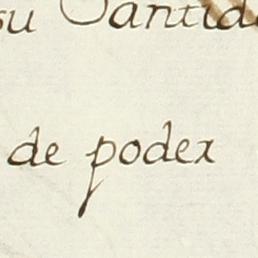 su Santida
de poder